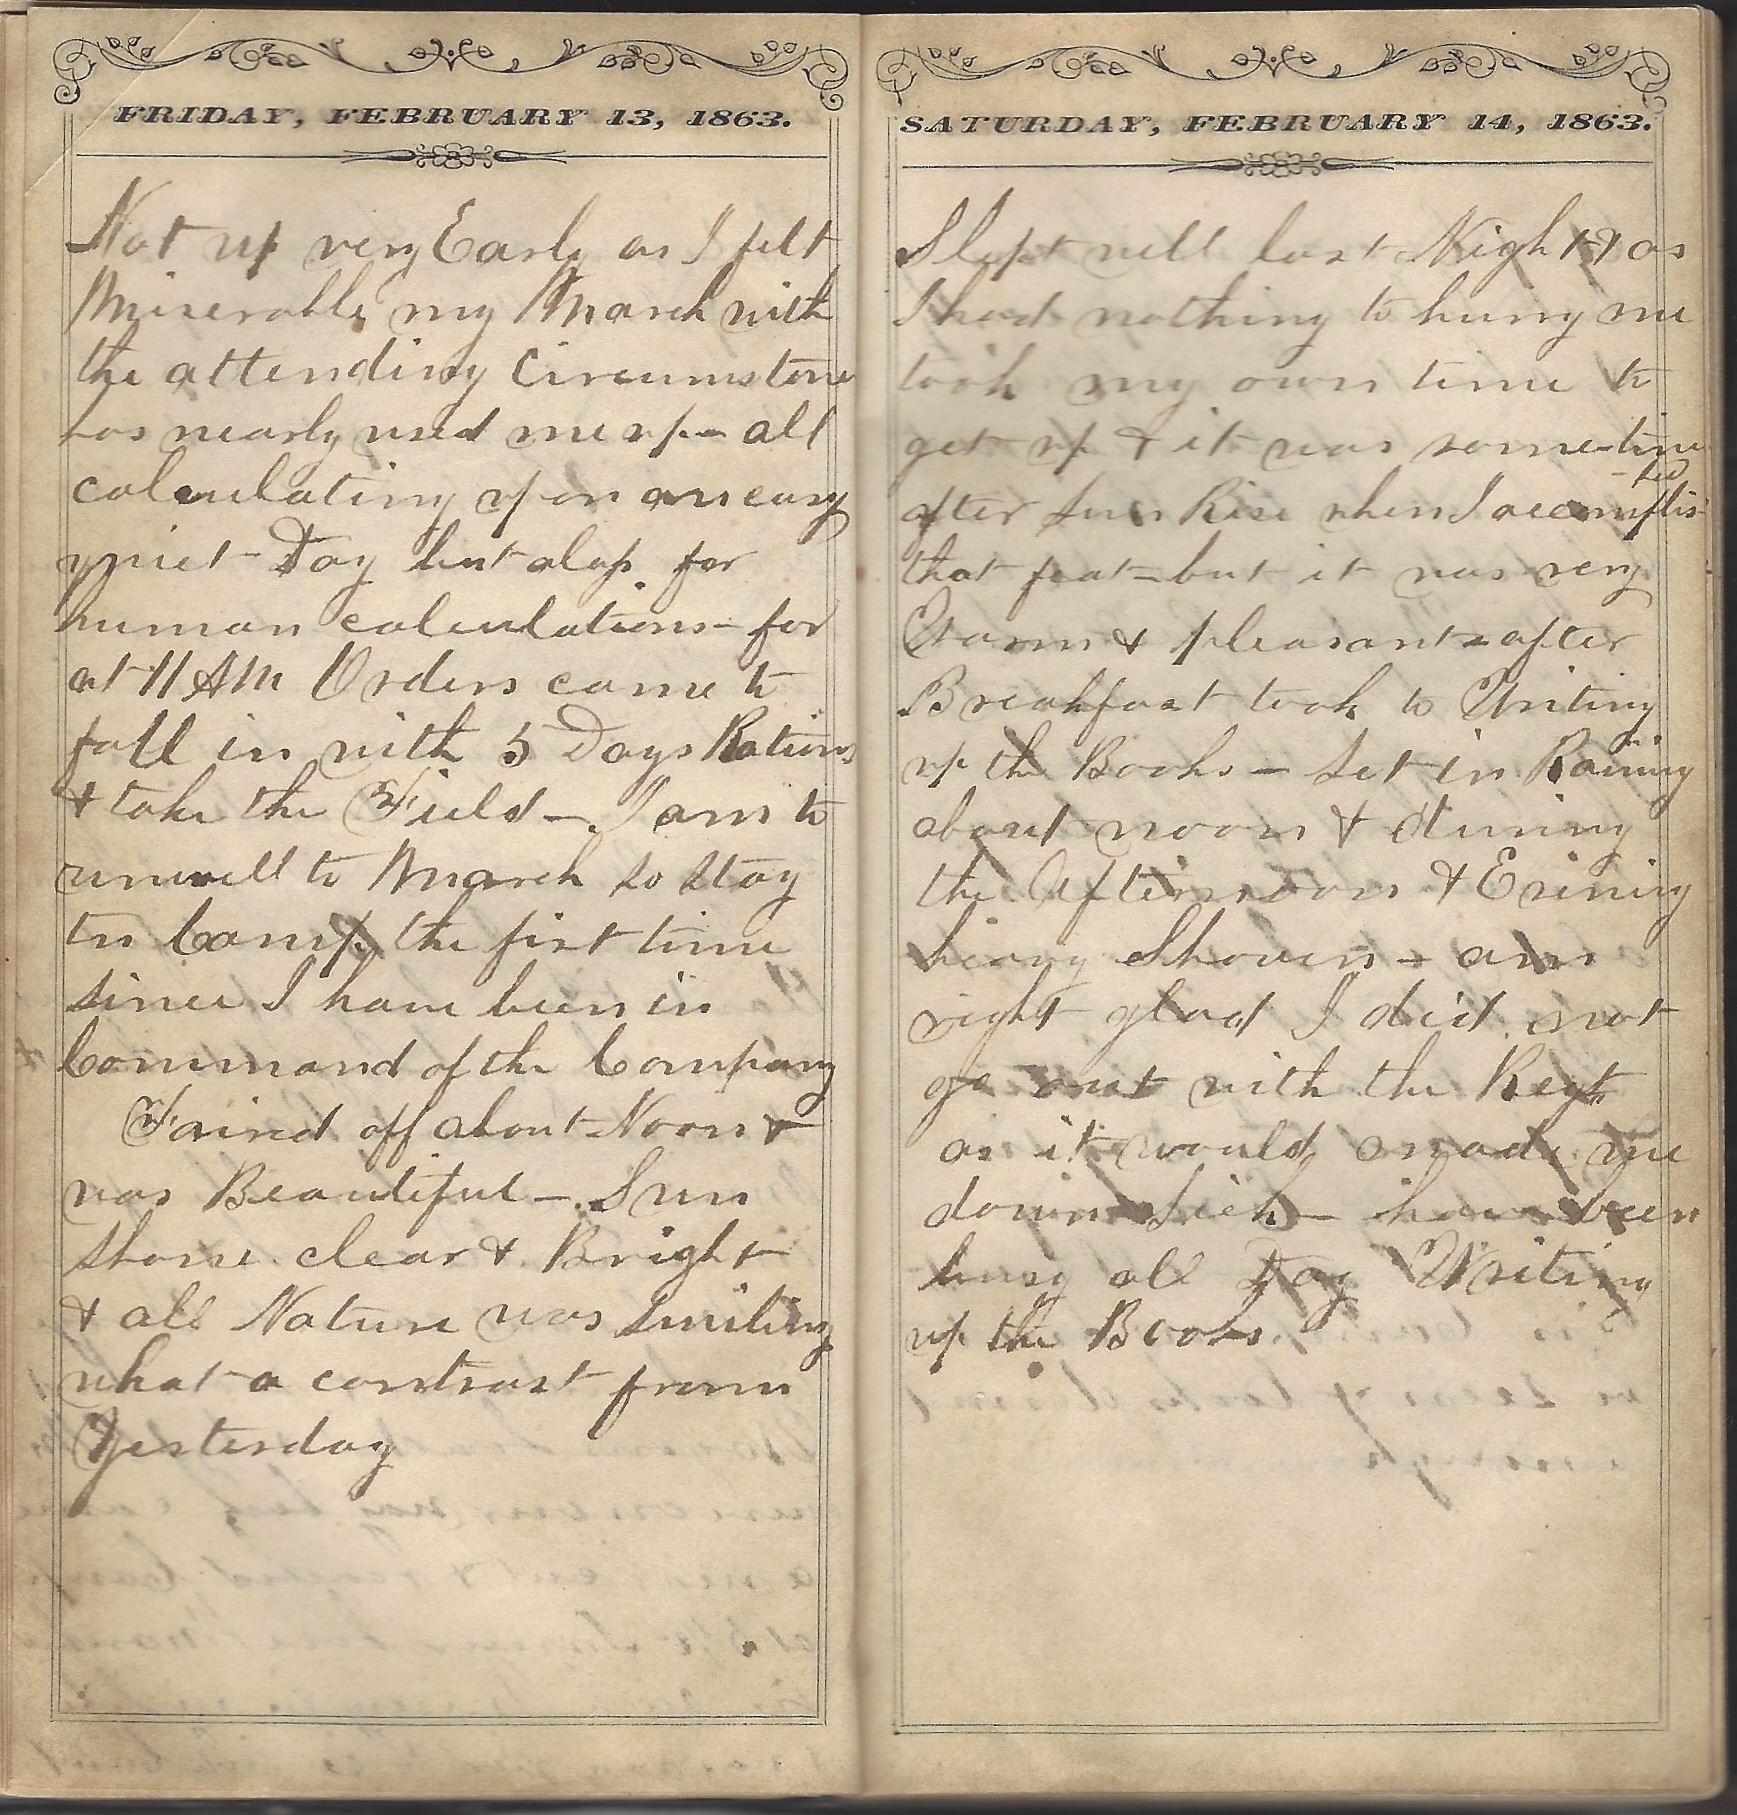 FRIDAY, FEBRUARY 13, 1863.
Not up very Early as I felt
Miserable, my March with
the attending Circumstance
has nearly used me up – all
calculating upon an easy
quiet Day but alas for
human calculations – for
at 11 AM Orders came to
fall in with 5 Days Rations
& take the Field – I am to
unwell to March so stay
in Camp the first time
since I have been in
Command of the Company
Faired off about Noon &
was Beautiful – Sun
shone clear & Bright
& all Nature was Smiling
what a contrast from
Yesterday
SATURDAY, FEBRUARY 14, 1863.
Slept well last Night & as
I had nothing to hurry me
took my own time to
get up & it was some time
after Sun Rise when I accomplished
that feat – but it was very
Warm & pleasant – after
Breakfast took to Writing
up the Books – Set in Raining
about noon & during
the Afternoon & Evening
heavy Showers – am
right glad I did not
go out with the Regt
as it would made me
down Sick – have been
busy all Day Writing
up the Books.